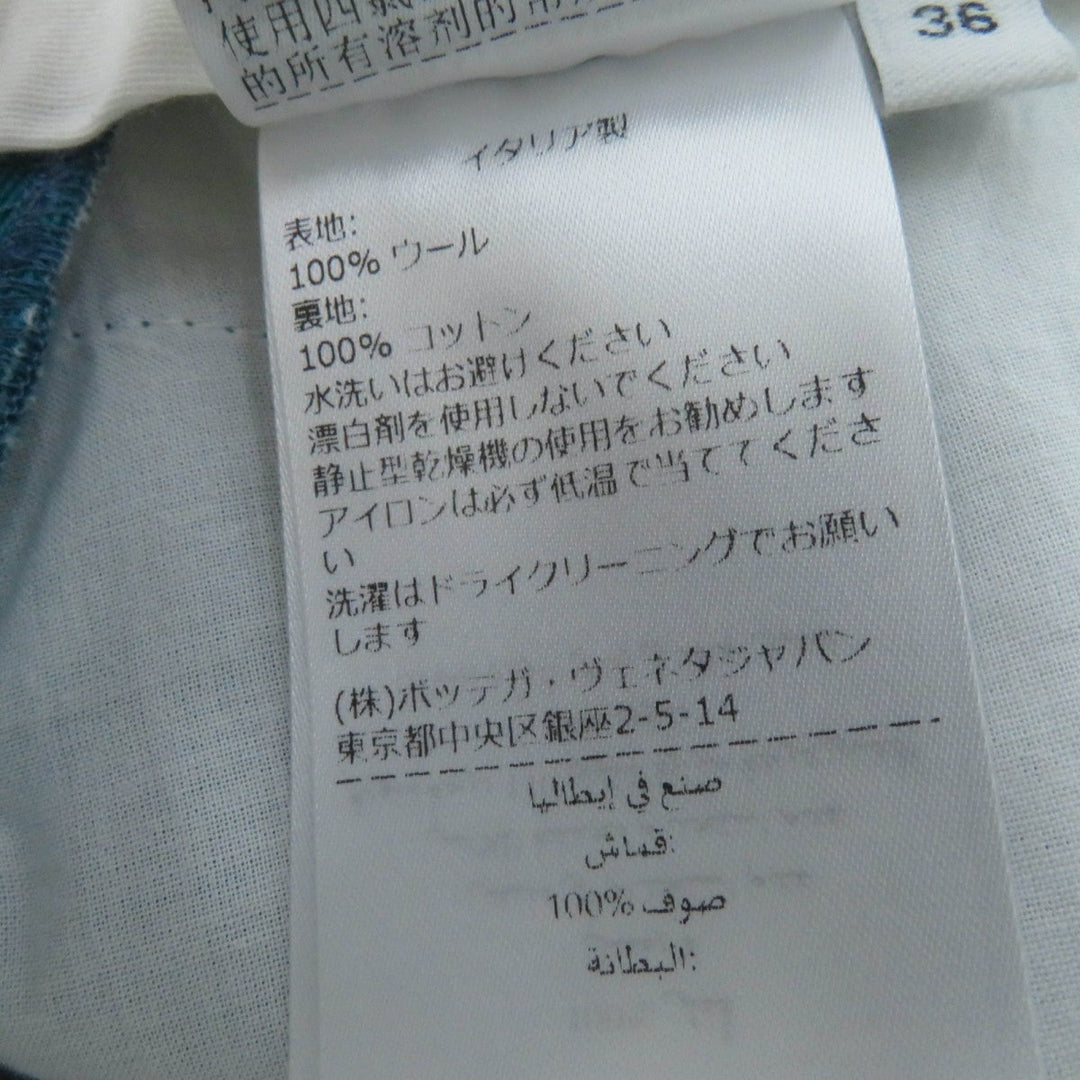 使用四氯
的所有溶剂的常规
36
イタリア製
表地:
100% ウール
裏地:
100% コットン
水洗いはお避けください
漂白剤を使用しないでください
静止型乾燥機の使用をお勧めします
アイロンは必ず低温で当ててくださ
い
洗濯はドライクリーニングでお願い
します
(株)ボッテガ・ヴェネタジャパン
東京都中央区銀座2-5-14
صنع في إيطاليا
قماش:
صوف %100
البطانة: